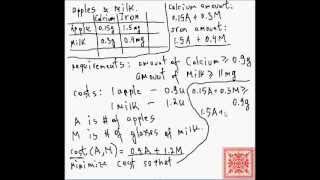 apples & milk.
Calcium Iron
Apple 0.15g 1.5mg
Milk 0.3g 0.4mg
Calcium amount:
0.15A + 0.3M
Iron amount:
1.5A + 0.4M
requirements: amount of Calcium ≥ 0.9g
amount of Milk ≥ 11mg
costs: 1 apple – 0.9u
1 milk – 1.2u
A is # of apples
M is # of glasses of milk.
cost(A,M) = 0.9A + 1.2M
minimize cost so that
0.15A + 0.3M ≥
0.9g
1.5A+